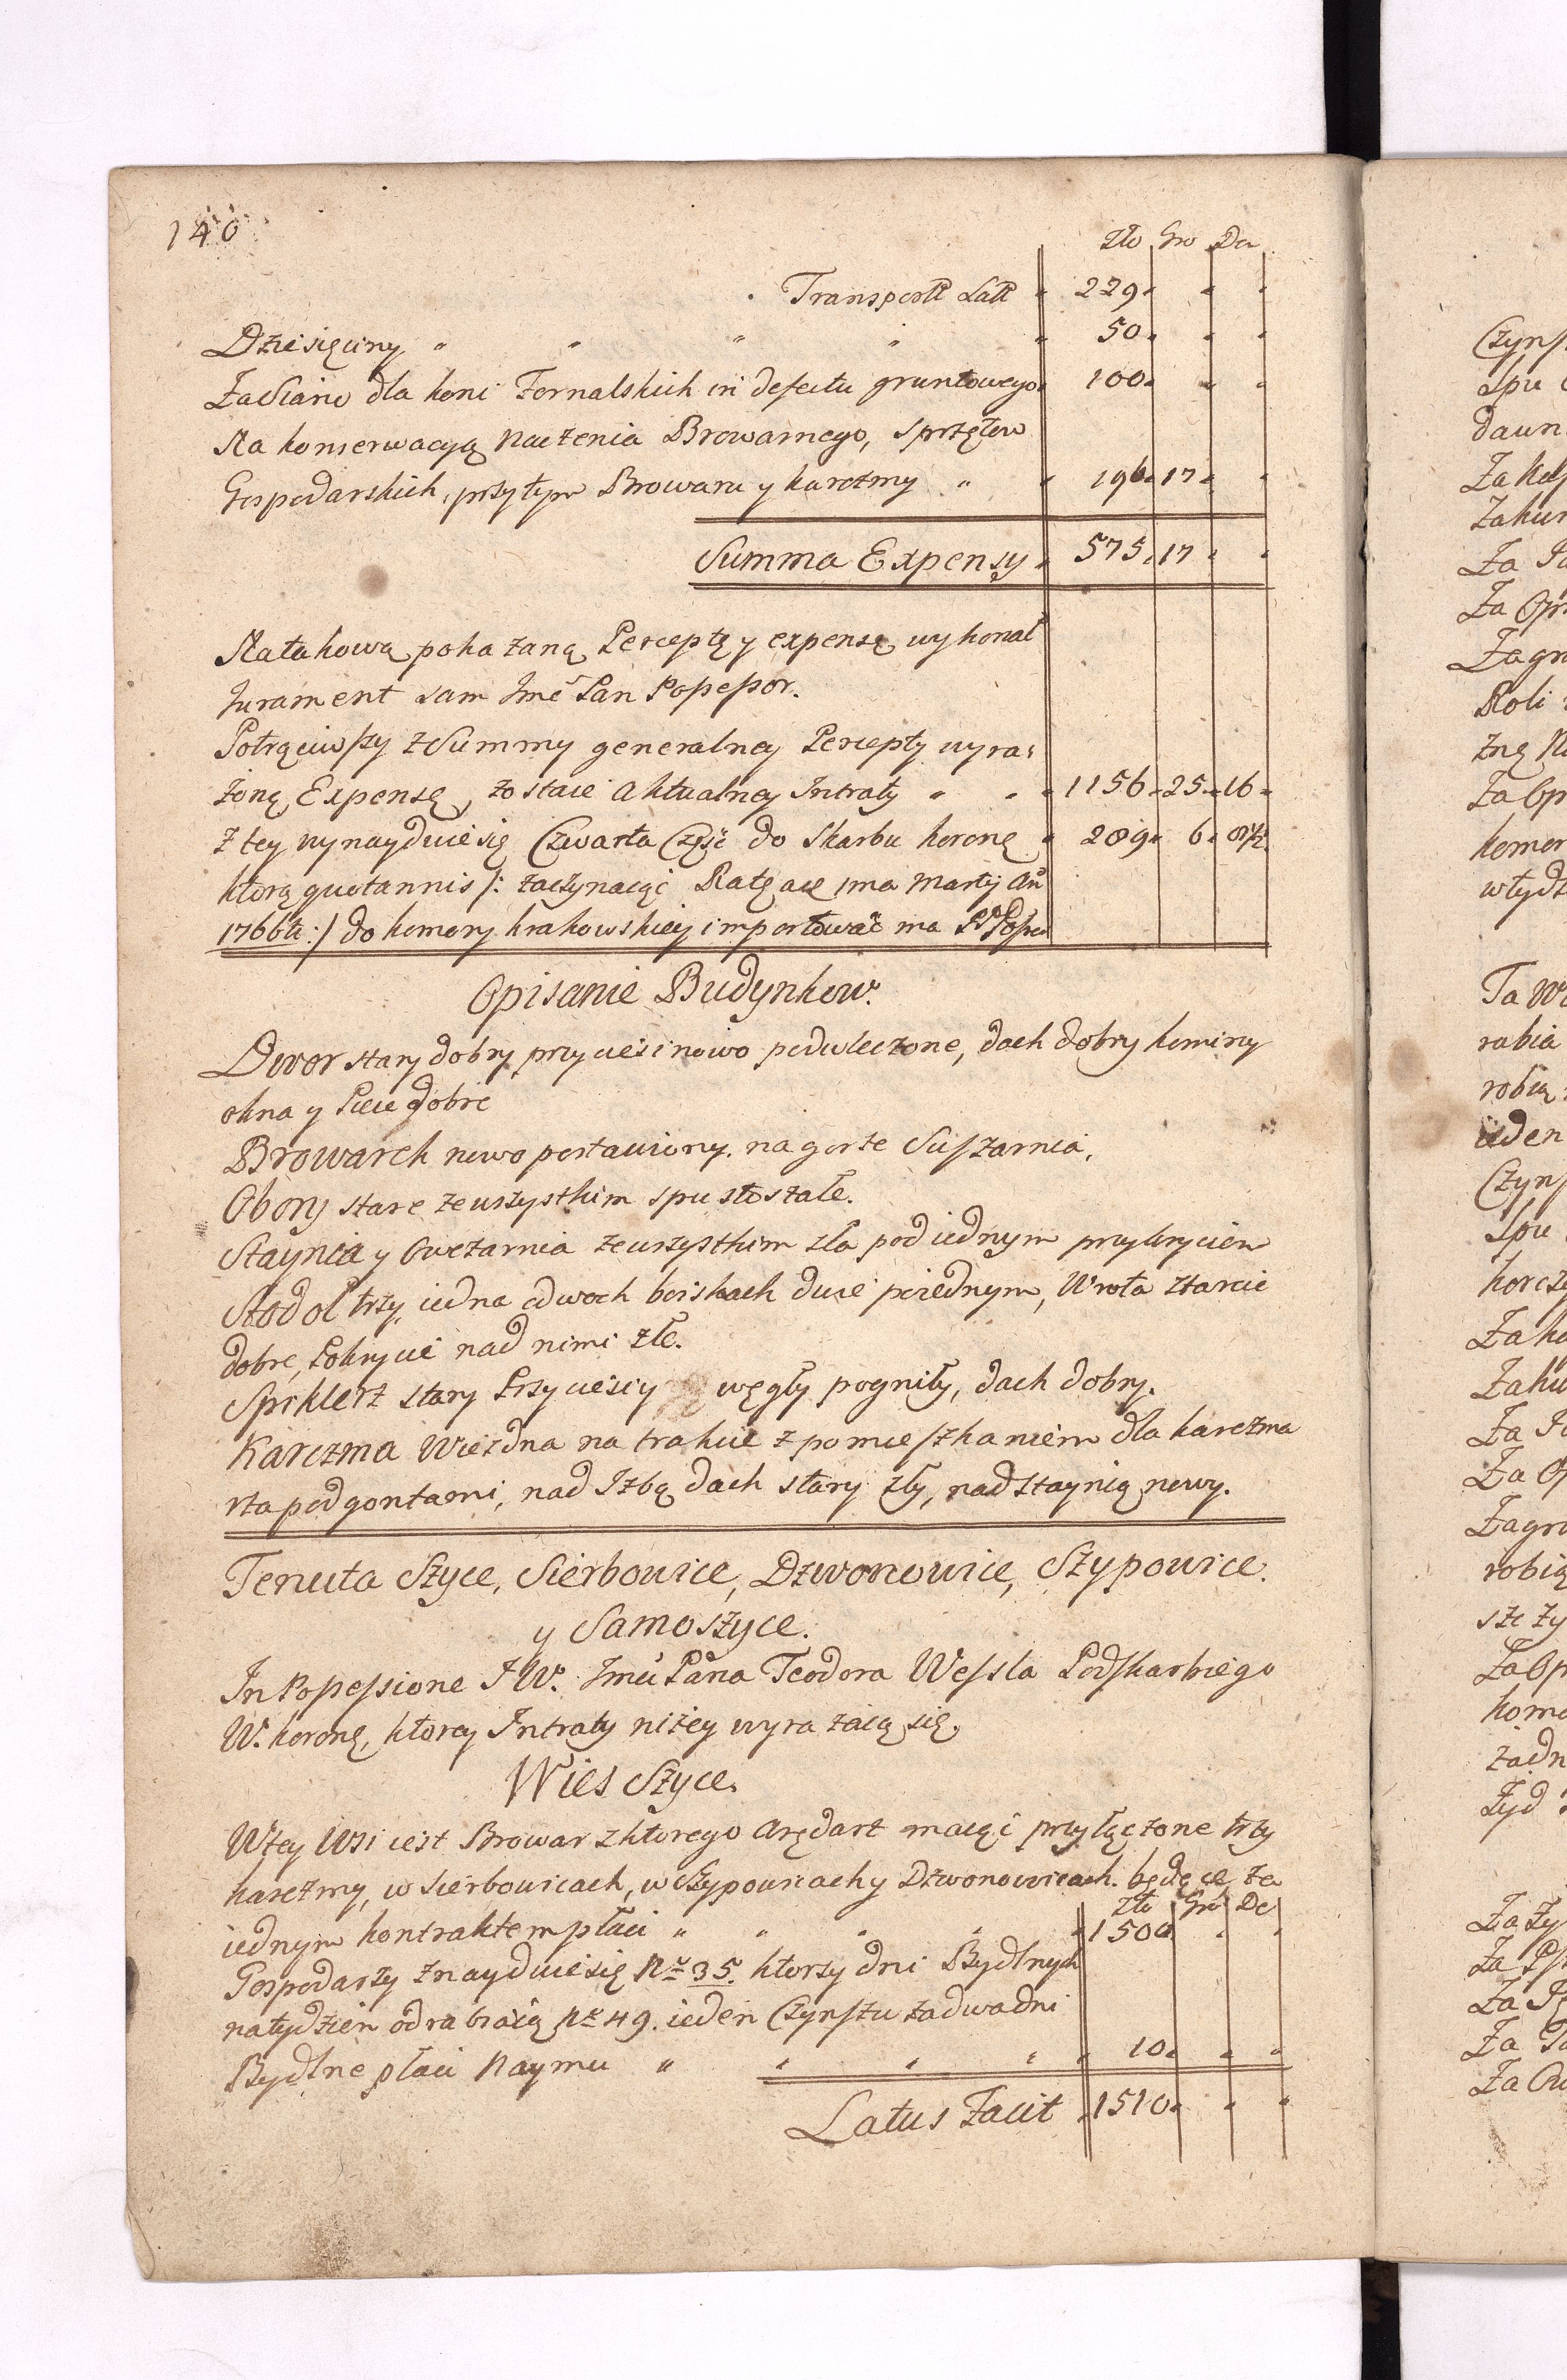 140
Zło Gro De
Transportt Latt 229
Dziesięciny 50
Za Siano dla koni Fornalskich in defectu gruntowego 100
Na konserwacyą naczenia Browarnego, sprzętow
Gospodarskich, przytym Browaru y karczmy 196 17
Summa Expensy 575 17
Na takową pokazaną Perceptę y expensę wykonał
Jurament sam Jmć Pan Possessor.
Potrąciwszy z Summy generalney Percepty wyra,
żoną Expensę, zostaie Aktualney Intraty 1156 25 16
z tey wynayduie się Czwarta Część do Skarbu koronę 289 6
ktorą quotannis /: zaczynaiąc Ratę a 1ma Martij
1766tt :/ do komory krakowskiey importować ma
Opisanie Budynkow.
Dwor stary dobry przyciesi nowo podwleczone, dach dobry kominy
okna y Piece dobre
Browarek nowo postawiony. na gorze Suszarnia,
Obory stare ze wszystkim spustoszałe.
Staynia y Owczarnia ze wszystkim zła pod iednym przykryciem
Stodoł trzy, iedna o dwoch boiskach dwie po iednym, Wrota ztarcie
dobre, Pokrycie nad nimi złe.
Spiklerz stary Przyciesi y węgły pogniły, dach dobry.
Karczma Wiezdna na trakcie z pomieszkaniem dla karczma
rza pod gontami, nad Izbą dach stary zły, nad staynią nowy.
Tenuta Szyce, Sierbowice, Dzwonowice, Szypowice.
y Samoszyce.
In Possessione J W. Jmci Pana Teodora Wessla Podskarbiego
W. koronę, ktorey Intraty niżey wyrażaią się.
Wies Szyce.
W tey Wsi iest Browar z ktorego Arędarz maiąc przyłączone trzy
karczmy, w Sierbowicach, w Szypowicach y Dzwonowicach. będące, za
Zło Gro De
iednym kontraktem płaci 1500
Gospodarzy znayduie się Nro 35. ktorzy dni Bydlnych
na tydzien odrabiaią Nro 49. ieden Czynszu za dwa dni
Bydlne płaci Naymu 10
Latus Facit 1510